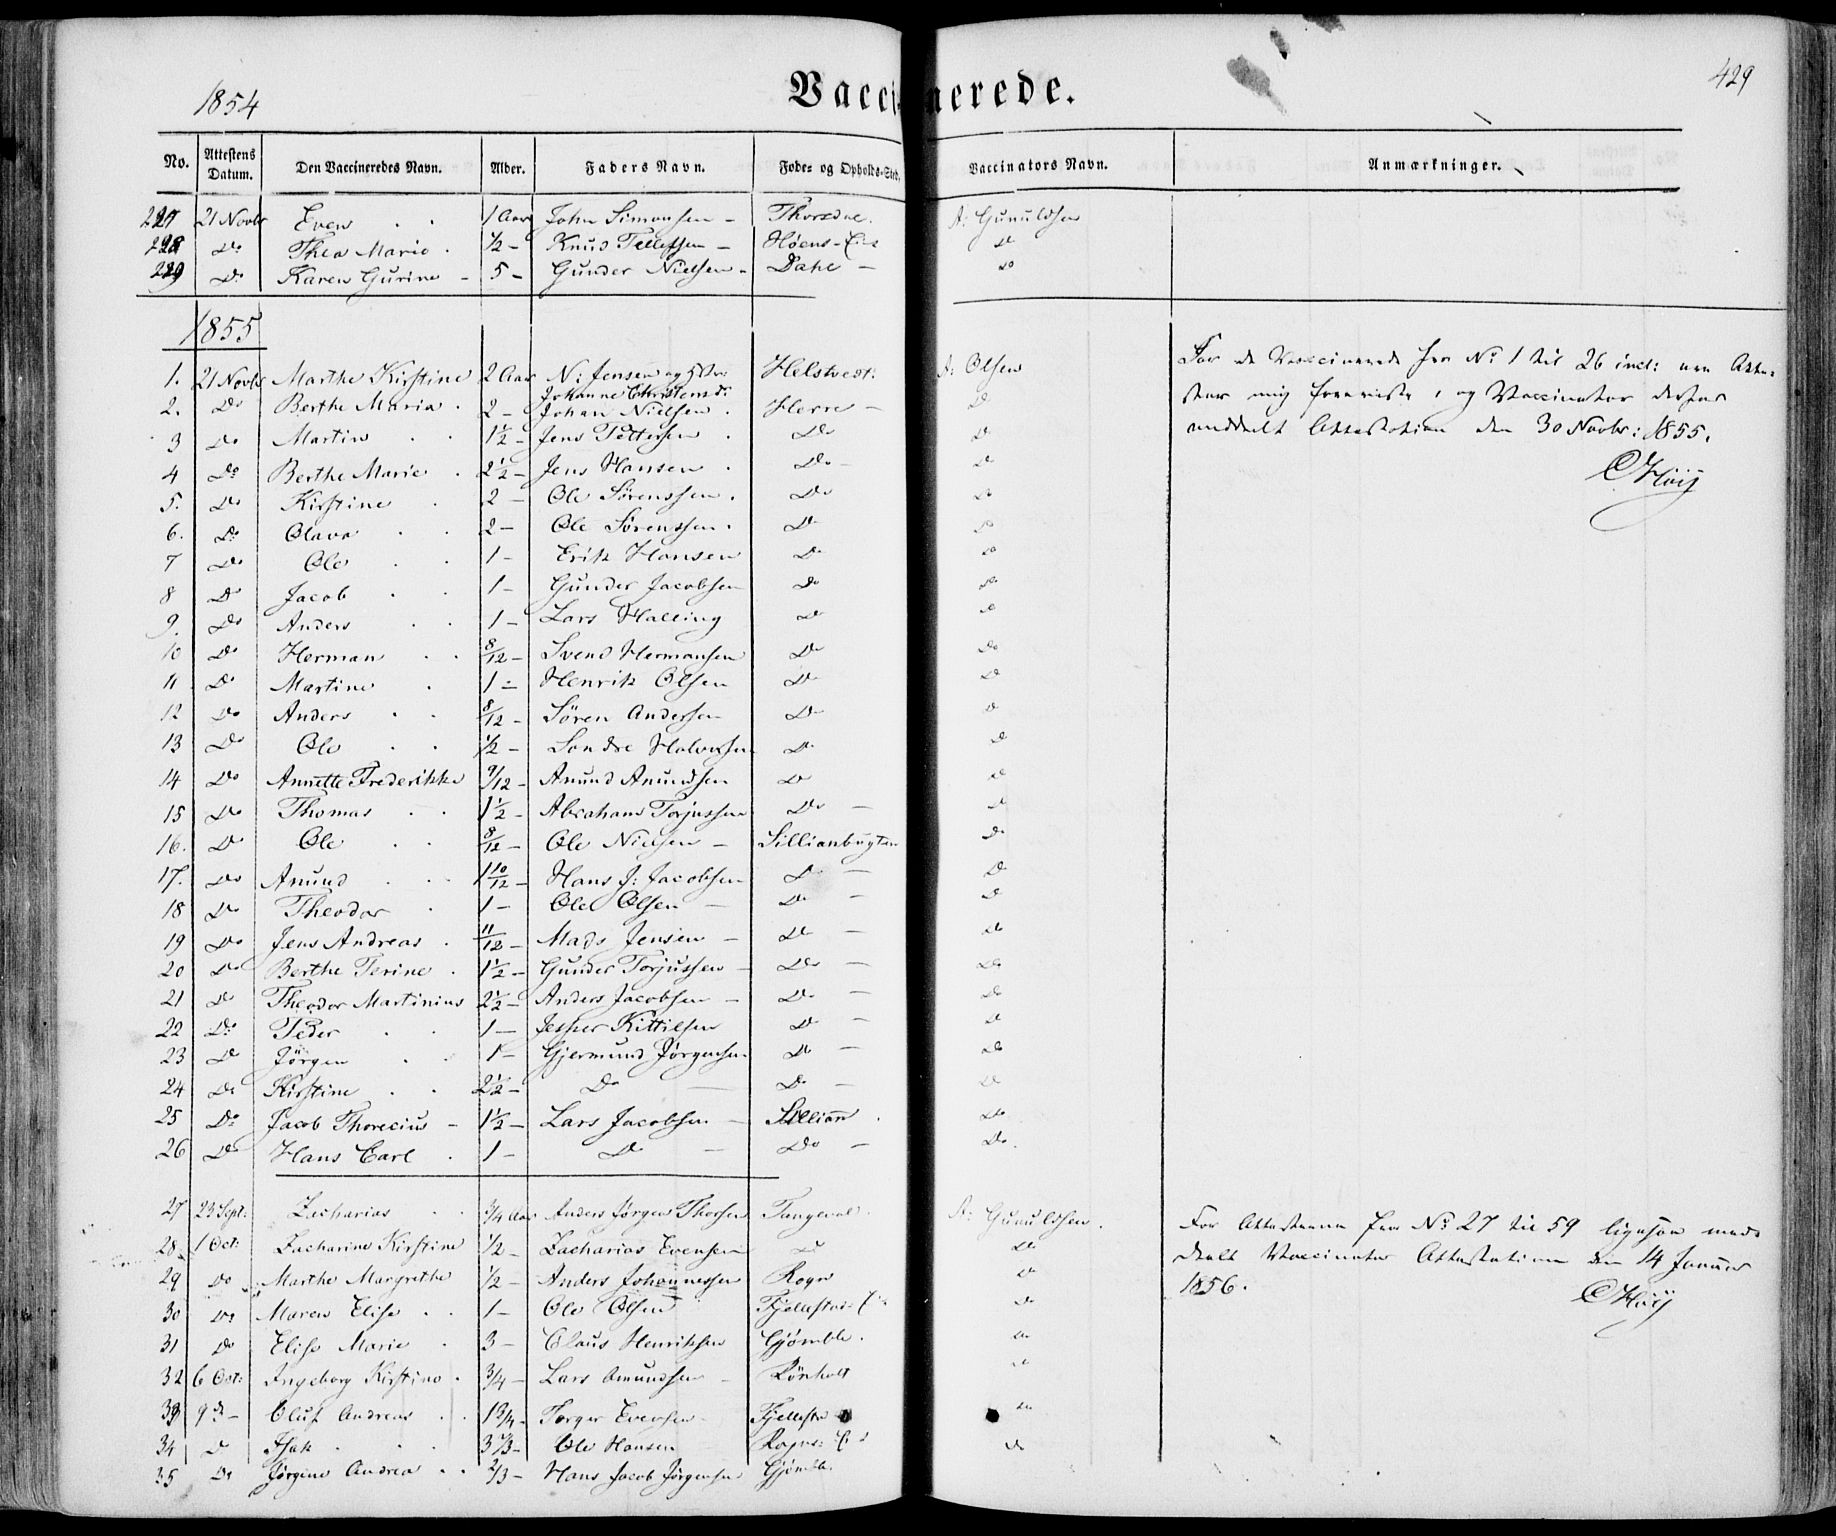 1854
Vaccinerede.
429
No. Attestens Datum. Den Vaccineredes Navn. Alder. Faders Navn. Føde- og Opholds-Sted. Vaccinators Navn. Anmærkninger.
227 21 Novbr Even 1 Aar John Simonsen - A: Gunuldsen
228 Do Thea Marie ½ - Knud Tellefsen - Høens-E: Do
229 Do Karen Gurine - 5 - Gunder Nielsen - Dahl - Do
1855
1. 21 Novbr Marthe Kirstine 2 Aar N: Jensen og Johanne Christensd: Helstvedt: A: Olsen
2. Do Berthe Maria 2 - Johan Nielsen Herre - Do
3 Do Martin 1½ - Jens Pettersen Do Do
4 Do Berthe Marie 2½ - Jens Hansen Do - Do
5. Do Kirstine 2 - Ole Sørenssen Do Do
6. Do Olava 2 - Ole Sørenssen Do Do
7 Do Ole 1 - Erik Hansen Do Do
8 Do Jacob 1 - Gunder Jacobsen Do Do
9. Do Anders 1 - Lars Halling Do Do
10 Do Herman 8/12 - Svend Hermansen Do Do
11 Do Martine 1 - Henrik Olsen Do Do
12 Do Anders 8/12 - Søren Andersen Do Do
13 Do Ole ½ - Sondre Halvorsen Do Do
14 Do Annette Frederikke 9/12 - Anund Anundsen Do Do
15 Do Thomas 1½ - Abraham Torjussen Do - Do
16. Do Ole 8/12 - Ole Nielsen - Sillianbugten Do
17. Do Anund 1 10/12 - Hans J: Jacobsen Do - Do
18 Do Theodor 1 - Ole Olsen - Do - Do
19 Do Jens Andreas 11/12 - Mads Jensen - Do - Do
20 Do Berthe Terine 1½ - Gunder Torjussen - Do - Do
21 Do Theodor Martinius 2½ - Anders Jacobsen - Do - Do
22 Do Peder 1 - Jesper Kittilsen Do - Do
23 Do Jörgen 1 - Gjermund Jørgensen Do - Do
24 Do Kirstine 2½ - Do - Do - Do
25 Do Jacob Thorecius - 1½ - Lars Jacobsen - Sillian Do
26 Do Hans Carl 1 - Do - Do - Do
For de Vaccinerede fra No 1 til 26 incl: ere Atte-
ster mig foreviste, og Vaccinator derfor
meddelt Attestation den 30 Novbr: 1855.
CHöij
27 23 Sept: Zacharias ¾ Aar Anders Jørgen Thorsen Tangeval A: Gunuldsen.
28 1 Oct: Zacharine Kirstine ½ - Zacharias Evensen Do Do
29 Do Marthe Margrethe ½ - Anders Johannessen Rogn Do
30 Do Maren Elise 1 - Ole Olsen Do
31 Do Elise Marie 3 - Claus Henriksen Gjømble. Do
32 6 Oct: Ingeborg Kirstine ¾ - Lars Amundsen - Rönholt Do
33 9 d - Oluf Andreas 1¾ - Torger Evensen - Do
34 Do Isak Ole Hansen Do
35 Do Jørgine Andrea 2/3 - Hans Jacob Jørgensen Gjømb.
For Attesterne fra No 27 til 59 ligesaa med-
deelt Vaccinator Attestation den 14 Januar
1856.
CHöij